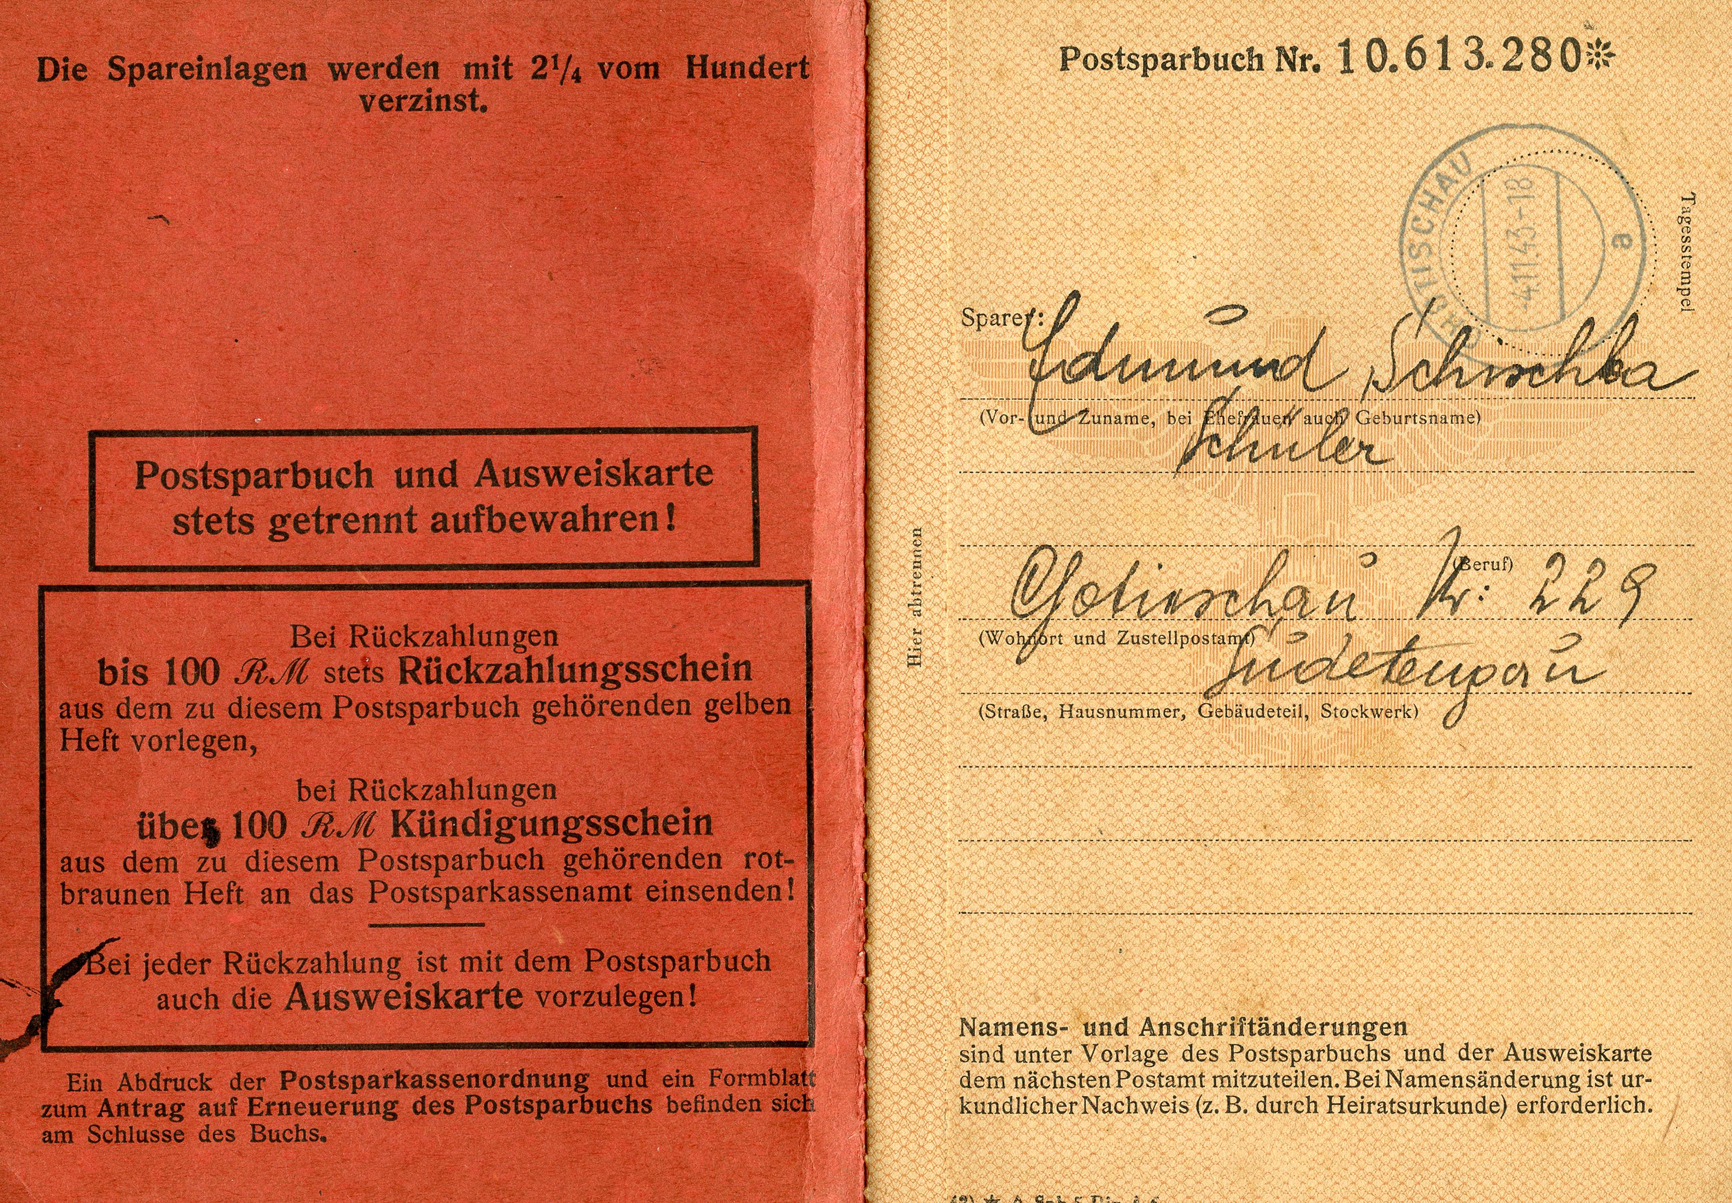 Die Spareinlagen werden mit 2¹/₄ vom Hundert
verzinst.
Postsparbuch und Ausweiskarte
stets getrennt aufbewahren!
Bei Rückzahlungen
bis 100 RM stets Rückzahlungsschein
aus dem zu diesem Postsparbuch gehörenden gelben
Heft vorlegen,
bei Rückzahlungen
über 100 RM Kündigungsschein
aus dem zu diesem Postsparbuch gehörenden rot-
braunen Heft an das Postsparkassenamt einsenden!
Bei jeder Rückzahlung ist mit dem Postsparbuch
auch die Ausweiskarte vorzulegen!
Ein Abdruck der Postsparkassenordnung und ein Formblatt
zum Antrag auf Erneuerung des Postsparbuchs befinden sich
am Schlusse des Buchs.
Hier abtrennen
Postsparbuch Nr. 10.613.280*
Tagesstempel
4.11.43-18
a
Sparer:
Edmund Schischka
(Vor- und Zuname, bei Ehefrauen auch Geburtsname)
Schüler
(Beruf)
Gotieschau Nr: 229
(Wohnort und Zustellpostamt)
Sudetengau
(Straße, Hausnummer, Gebäudeteil, Stockwerk)
Namens- und Anschriftänderungen
sind unter Vorlage des Postsparbuchs und der Ausweiskarte
dem nächsten Postamt mitzuteilen. Bei Namensänderung ist ur-
kundlicher Nachweis (z. B. durch Heiratsurkunde) erforderlich.